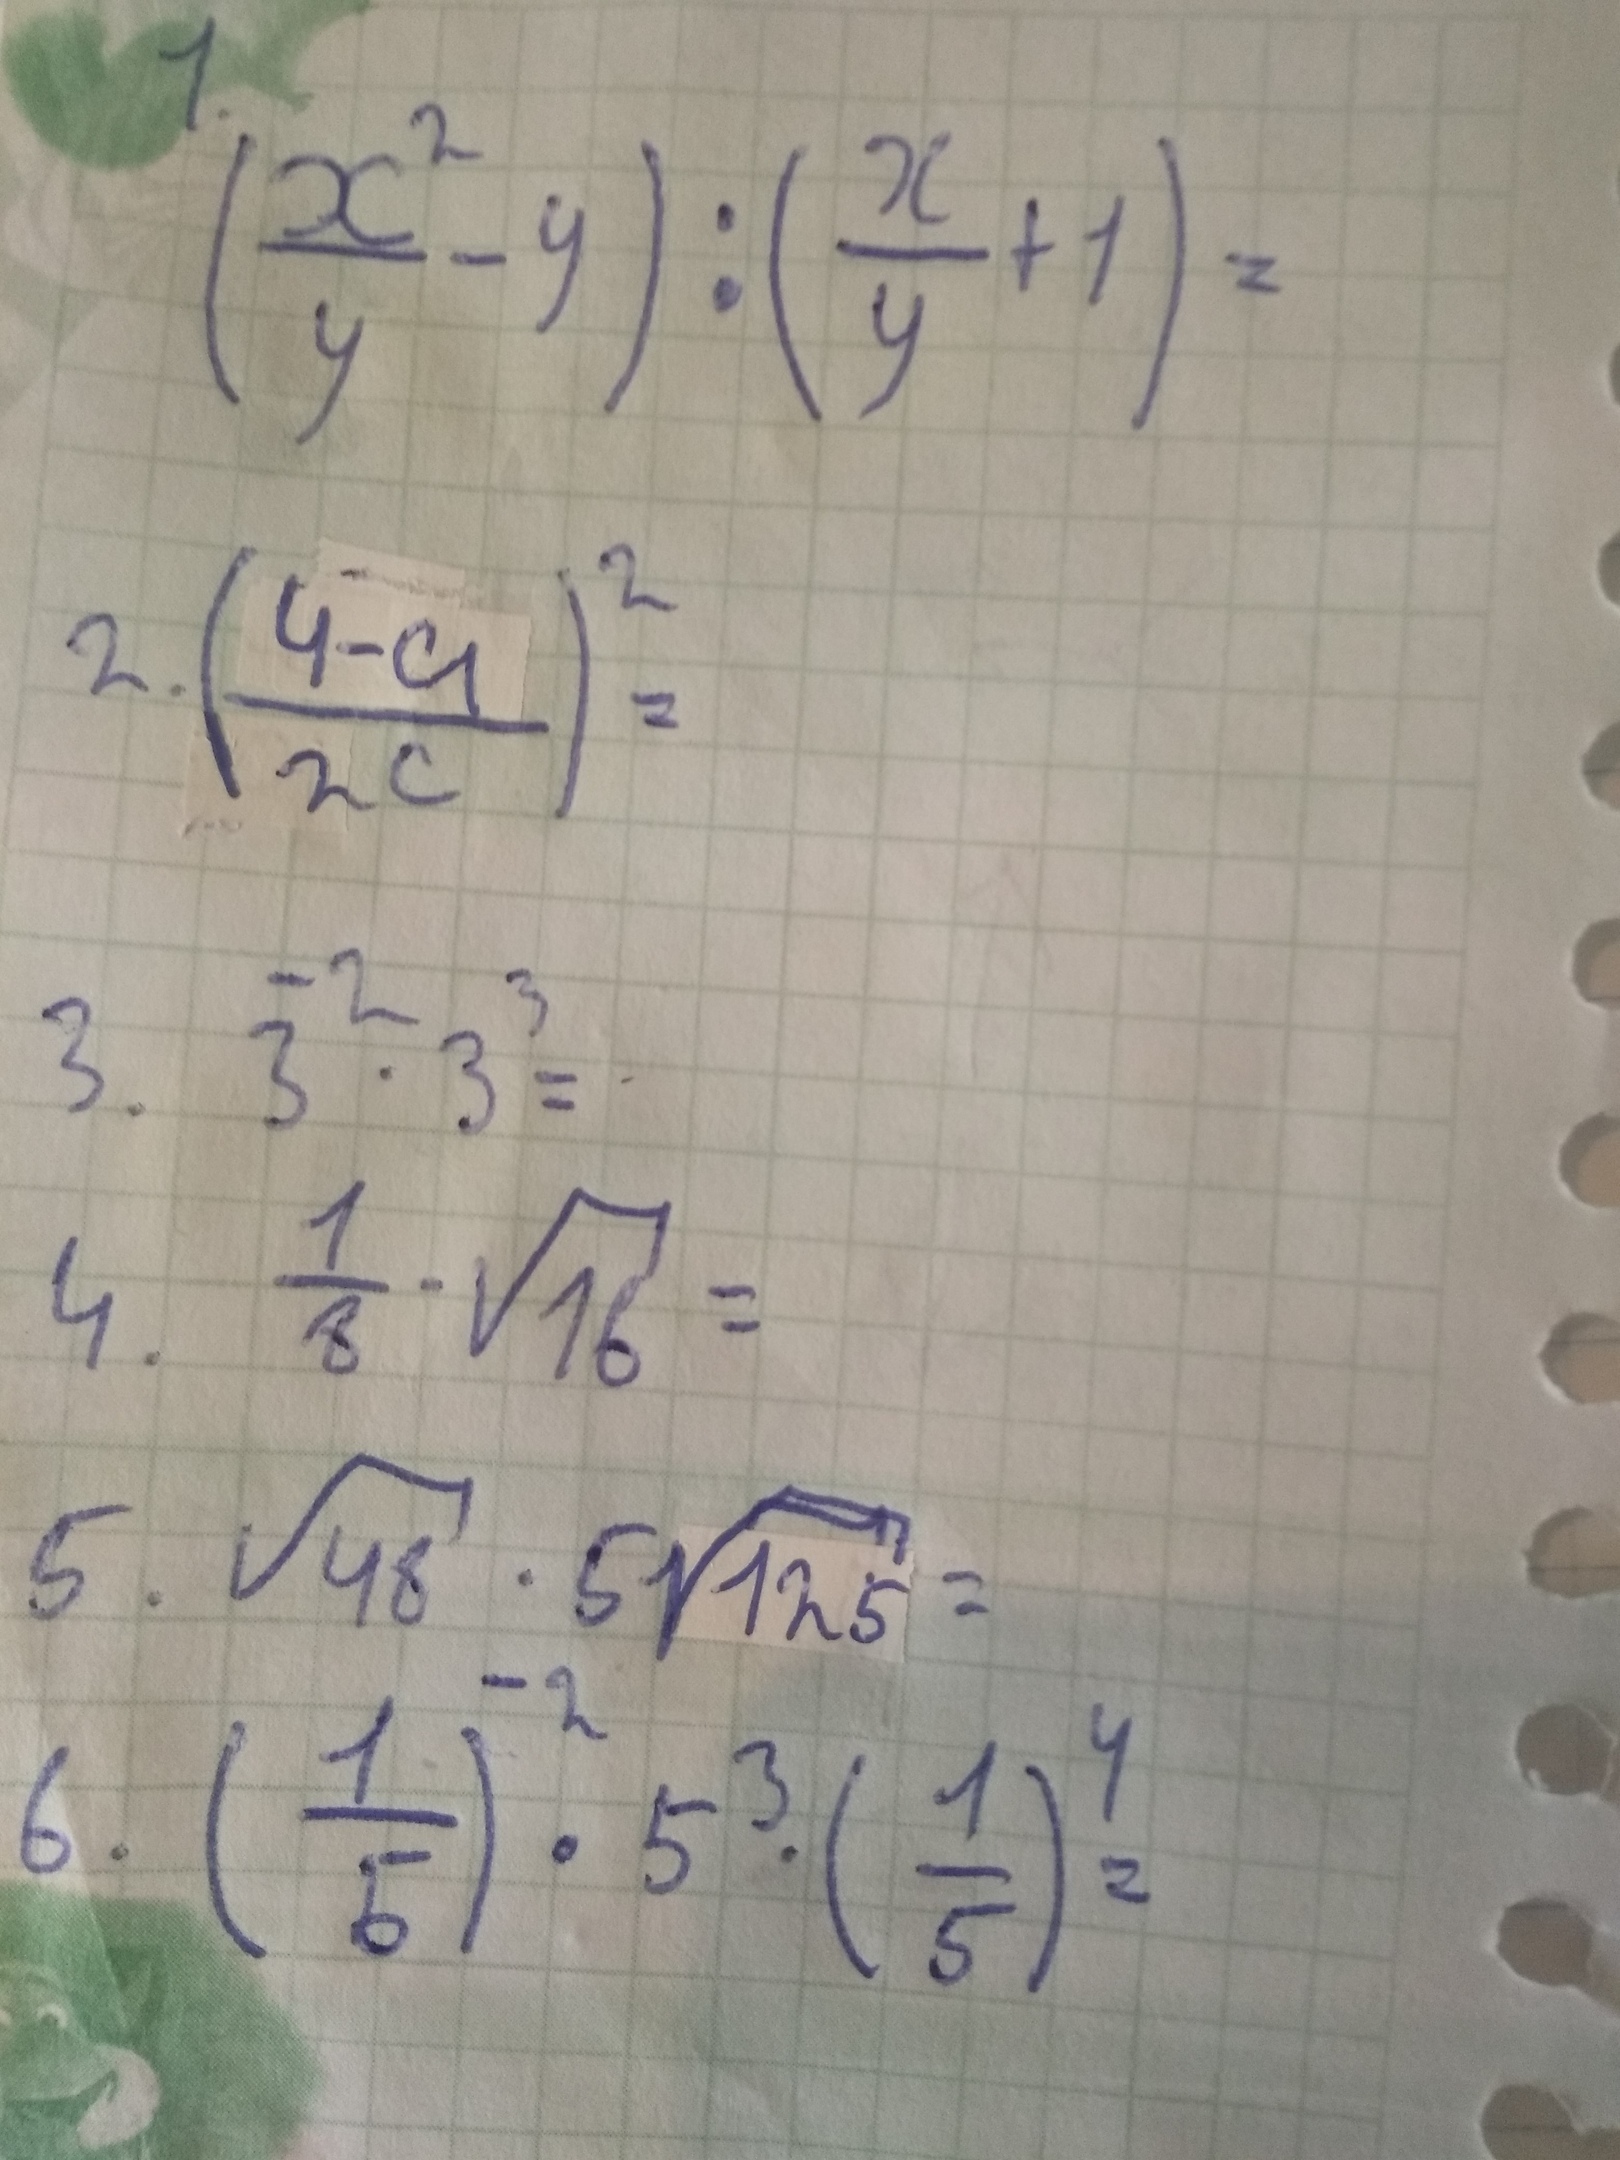 1.
(x²/y - y) : (x/y + 1) =
2. ((4-a)/2c)² =
3. 3⁻² · 3³ =
4. 1/8 · √16 =
5. √48 · 5√125 =
6. (1/5)⁻² · 5³ · (1/5)⁴ =